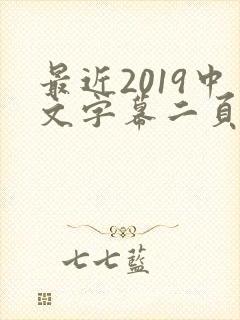 最近2019中
文字幕二頁
七七藍